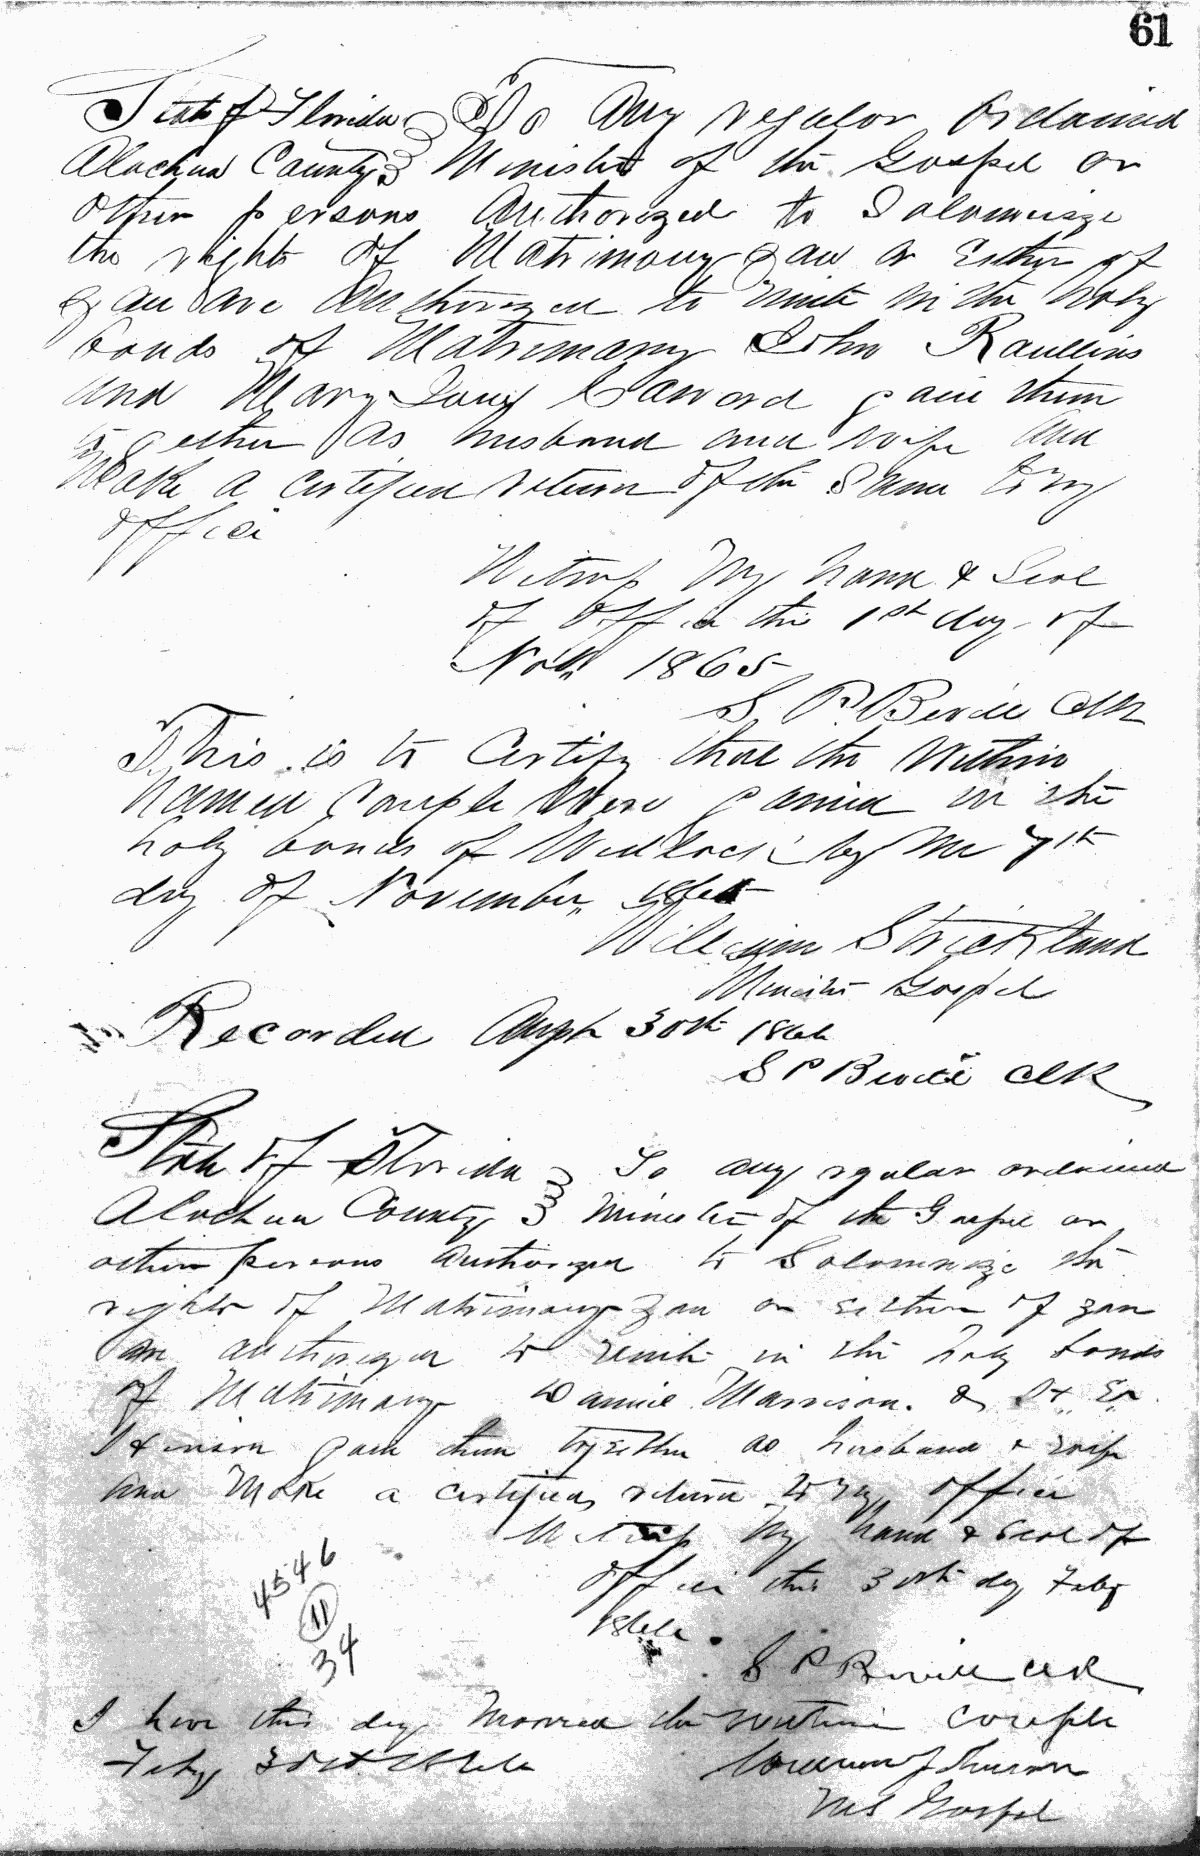 61
State of Florida To Any regular Ordained
Alachua County Minister of the Gospel or
other persons Authorized to Solomnize
the rights of Matrimony you or Either of
you are Authorized to unite in the holy
bonds of Matrimony John Raullins
and Mary Jane join them
together as husband and wife and
Make a certified return of the Same to my
office
Witness My hand & Seal
of office this 1st day of
Nov 1865
S. P. Bevill Clk
This is to Certify that the within
named couple were joined in the
holy bonds of Wedlock by me 7th
day of November
William Strickland
Minister Gospel
Recorded 30th 1866
S P Bevill Clk
State of Florida To any regular ordained
Alachua County Minister of the Gospel or
other persons Authorized to Solomnize the
rights of Matrimony you or either of you
are authorized to unite in the holy bonds
of Matrimony Morrison &
join them together as husband & wife
and Make a certified return to my office
Witness My hand & Seal of
office this 30th day Feby
1866
S P Bevill Clk
4546
11
34
I have this day Married the within couple
Feby 30th 1866
Gospel